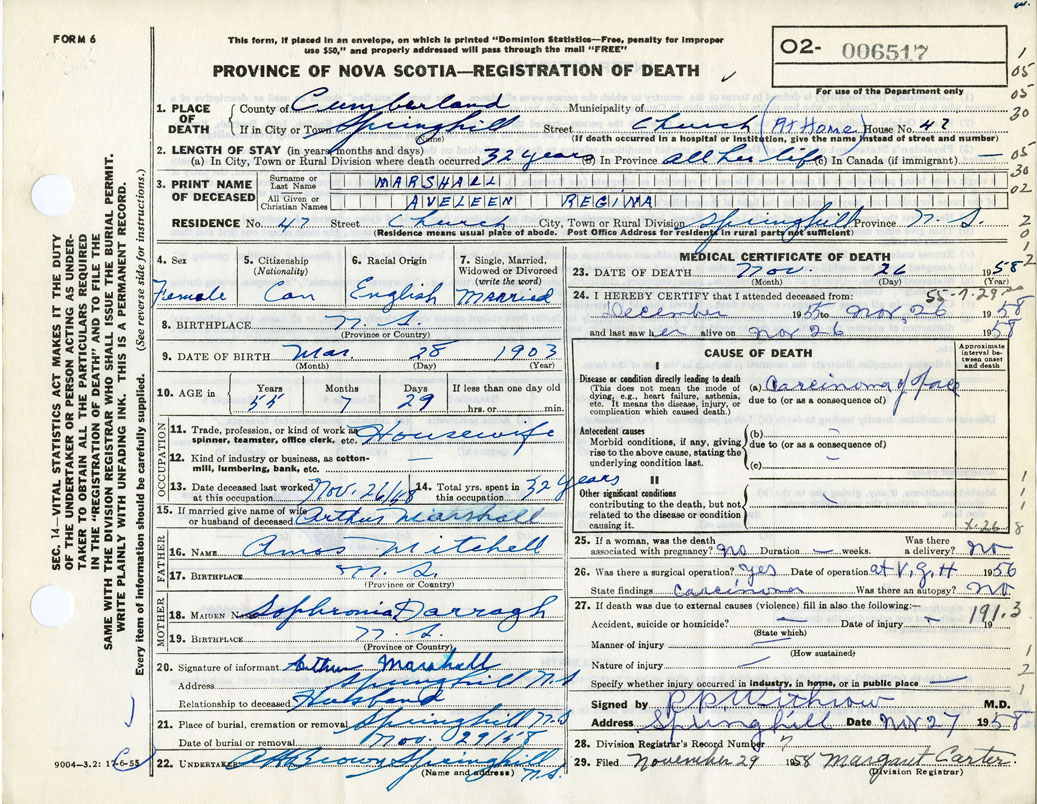 FORM 6
This form, if placed in an envelope, on which is printed "Dominion Statistics—Free, penalty for improper
use $50," and properly addressed will pass through the mail "FREE"
PROVINCE OF NOVA SCOTIA—REGISTRATION OF DEATH
O2- 006517
For use of the Department only
1. PLACE OF DEATH
County of Cumberland Municipality of
If in City or Town Springhill Street Church (At Home) House No. 47
(Name) (If death occurred in a hospital or institution, give the name instead of street and number)
2. LENGTH OF STAY (in years, months and days)
(a) In City, Town or Rural Division where death occurred 32 years (b) In Province all her life (c) In Canada (if immigrant) —
3. PRINT NAME OF DECEASED
Surname or Last Name MARSHALL
All Given or Christian Names AVELEEN REGINA
RESIDENCE No. 47 Street Church City, Town or Rural Division Springhill Province N.S.
(Residence means usual place of abode. Post Office Address for residents in rural party not sufficient)
4. Sex
Female
5. Citizenship
(Nationality)
Can
6. Racial Origin
English
7. Single, Married,
Widowed or Divorced
(write the word)
Married
8. BIRTHPLACE N.S.
(Province or Country)
9. DATE OF BIRTH Mar. 28 1903
(Month) (Day) (Year)
10. AGE in
Years Months Days If less than one day old
55 7 29 hrs. or min.
OCCUPATION
11. Trade, profession, or kind of work as
spinner, teamster, office clerk, etc. Housewife
12. Kind of industry or business, as cotton-
mill, lumbering, bank, etc. —
13. Date deceased last worked
at this occupation Nov. 26/48
14. Total yrs. spent in
this occupation 32 years
15. If married give name of wife
or husband of deceased Arthur Marshall
FATHER
16. NAME Amos Mitchell
17. BIRTHPLACE N.S.
(Province or Country)
MOTHER
18. MAIDEN NAME Sophronia Darragh
19. BIRTHPLACE N.S.
(Province or Country)
20. Signature of informant Arthur Marshall
Address Springhill N.S
Relationship to deceased Husband
21. Place of burial, cremation or removal Springhill N.S
Date of burial or removal Nov. 29/58
22. UNDERTAKER Brown Springhill
(Name and address) N.S.
9004-3.2: 17-6-55
MEDICAL CERTIFICATE OF DEATH
23. DATE OF DEATH Nov. 26 1958
(Month) (Day)
55-7-29
24. I HEREBY CERTIFY that I attended deceased from:
December 1955 to Nov, 26 1958
and last saw her alive on Nov 26 1958
CAUSE OF DEATH
Approximate
interval be-
tween onset
and death
I
Disease or condition directly leading to death
(This does not mean the mode of
dying, e.g., heart failure, asthenia,
etc. It means the disease, injury, or
complication which caused death.)
(a) Carcinoma of face
due to (or as a consequence of)
Antecedent causes
Morbid conditions, if any, giving
rise to the above cause, stating the
underlying condition last.
(b) —
due to (or as a consequence of)
(c) —
II
Other significant conditions
contributing to the death, but not
related to the disease or condition
causing it.
25. If a woman, was the death
associated with pregnancy? No Duration — weeks. Was there
a delivery? No
26. Was there a surgical operation? Yes Date of operation at V.G.H 1956
State findings Carcinoma Was there an autopsy? No
27. If death was due to external causes (violence) fill in also the following:—
191.3
Accident, suicide or homicide? — Date of injury — 19
(State which)
Manner of injury —
(How sustained)
Nature of injury —
Specify whether injury occurred in industry, in home, or in public place —
Signed by P.P. Withrow M.D.
Address Springhill Date Nov 27 1958
28. Division Registrar's Record Number 7
29. Filed November 29 1958 Margaret Carter.
(Division Registrar)
SEC. 14—VITAL STATISTICS ACT MAKES IT THE DUTY
OF THE UNDERTAKER OR PERSON ACTING AS UNDER-
TAKER TO OBTAIN ALL THE PARTICULARS REQUIRED
IN THE "REGISTRATION OF DEATH" AND TO FILE THE
SAME WITH THE DIVISION REGISTRAR WHO SHALL ISSUE THE BURIAL PERMIT.
WRITE PLAINLY WITH UNFADING INK. THIS IS A PERMANENT RECORD.
Every item of information should be carefully supplied. (See reverse side for instructions.)
1
05
05
30
05
30
02
2
0
1
2
1
1
1
8
1
2
1